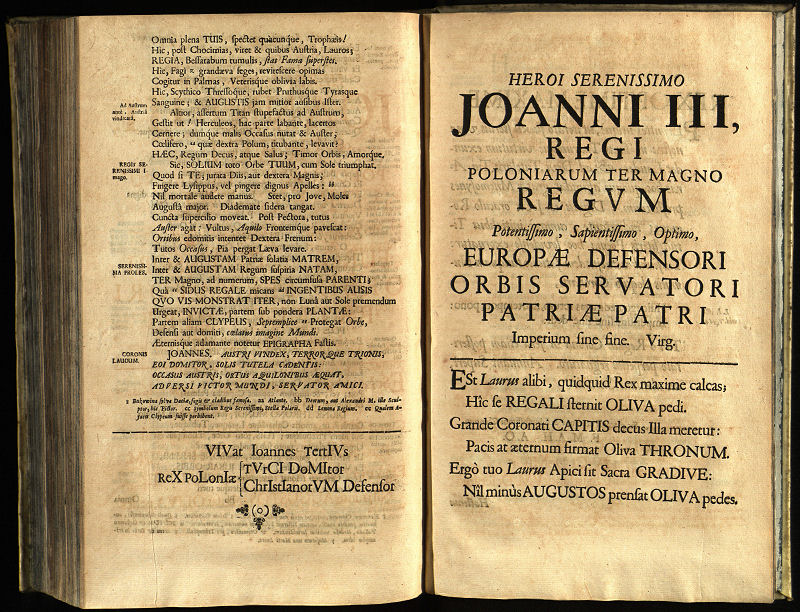 Omnia plena TUIS, spectet quacunque, Trophæis!
Hic, post Chocimias, viret & quibus Austria, Lauros;
REGIA, Bessarabum tumulis, stat Fama superstes.
Hic, Fagi z grandæva seges, revirescere opimas
Cogitur in Palmas, Veterisque oblivia labis.
Hic, Scythico Thressoque, rubet Pruthusque Tyrasque
Sanguine; & AUGUSTIS jam mitior ausibus Ister.
Ad Austrum
Altior, assertum Titan stupefactus ad Austrum,
vindicatá.
Gestit ut! Herculeos, hac parte labante, lacertos
Cernere; dumque malis Occasus nutat & Auster;
Cœlifero, aa quæ dextra Polum, titubante, levavit?
HÆC, Regum Decus, atque Salus; Timor Orbis, Amorque,
REGIS SE-
RENISSIMI I-
mago.
Sic, SOLIUM toto Orbe TUUM, cum Sole triumphat.
Quod si TE; jurata Diis, aut dextera Magnis;
Fingere Lysippus, vel pingere dignus Apelles: bb
Nil mortale audete manus. Stet, pro Jove, Moles
Augustâ major. Diademate sidera tangat.
Cuncta supercilio moveat. Post Pectora, tutus
Auster agat: Vultus, Aquilo Frontemque pavescat:
Ortibus edomitis intentet Dextera Frenum:
Tutos Occasus, Pia pergat Læva levare.
SERENISSI-
MA PROLES.
Inter & AUGUSTAM Patriæ solatia MATREM,
Inter & AUGUSTAM Regum suspiria NATAM,
TER Magno, ad numerum, SPES circumfusa PARENTI;
Quà cc SIDUS REGALE micans dd INGENTIBUS AUSIS
QVO VIS MONSTRAT ITER, non Lunâ aut Sole premendum
Urgeat, INVICTÆ, partem sub pondera PLANTÆ:
Partem aliam CLYPEUS, Septemplice ee Protegat Orbe,
Defensi aut domiti, cœlatus imagine Mundi.
Æternisque adamante notetur EPIGRAPHA Fastis.
CORONIS
LAUDUM.
JOANNES, AUSTRI VINDEX, TERRORQUE TRIONIS,
EOI DOMITOR, SOLIS TUTELA CADENTIS:
OCCASUS AUSTRIS, ORTUS AQUILONIBUS ÆQUAT,
ADVERSI VICTOR MUNDI, SERVATOR AMICI.
z Bukowina sylva Daciæ, fagis & cladibus famosa. aa Atlante. bb Deorum, aut Alexandri M. ille Scul-
ptor, hic Pictor. cc Symbolum Regiæ Serenissimi, Stella Polaris. dd Lemma Regium. ee Qualem A-
jacis Clypeum fuisse perhibent.
VIVat Ioannes TertIVs
ReX PoLonIæ
TVrCI DoMItor
ChrIstIanorVM Defensor
HEROI SERENISSIMO
JOANNI III,
REGI
POLONIARUM TER MAGNO
REGVM
Potentissimo, Sapientissimo, Optimo,
EUROPÆ DEFENSORI
ORBIS SERVATORI
PATRIÆ PATRI
Imperium sine fine. Virg.
ESt Laurus alibi, quidquid Rex maxime calcas;
Hîc se REGALI sternit OLIVA pedi.
Grande Coronati CAPITIS decus Illa meretur:
Pacis at æternum firmat Oliva THRONUM.
Ergò tuo Laurus Apici sit Sacra GRADIVE:
Nîl minùs AUGUSTOS prensat OLIVA pedes.